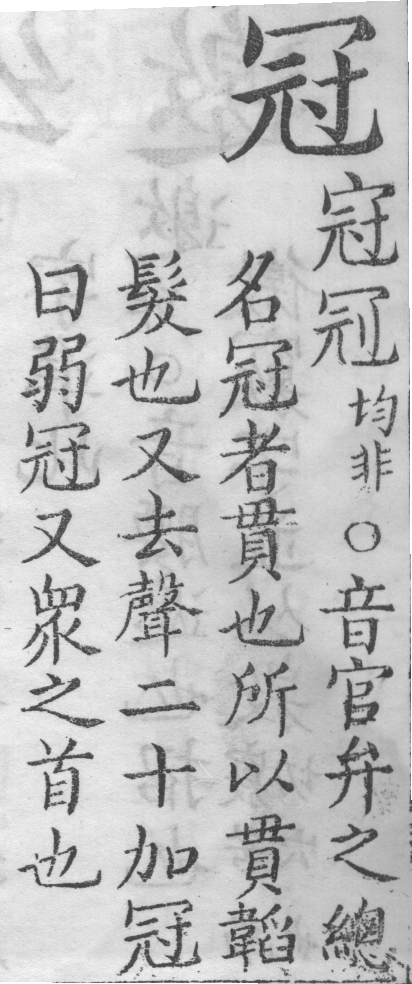 冠
均非
○音官弁之總
名冠者貫也所以貫韜
髮也又去聲二十加冠
曰弱冠又眾之首也